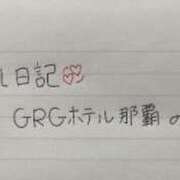 ル日記
GRGホテル那覇の